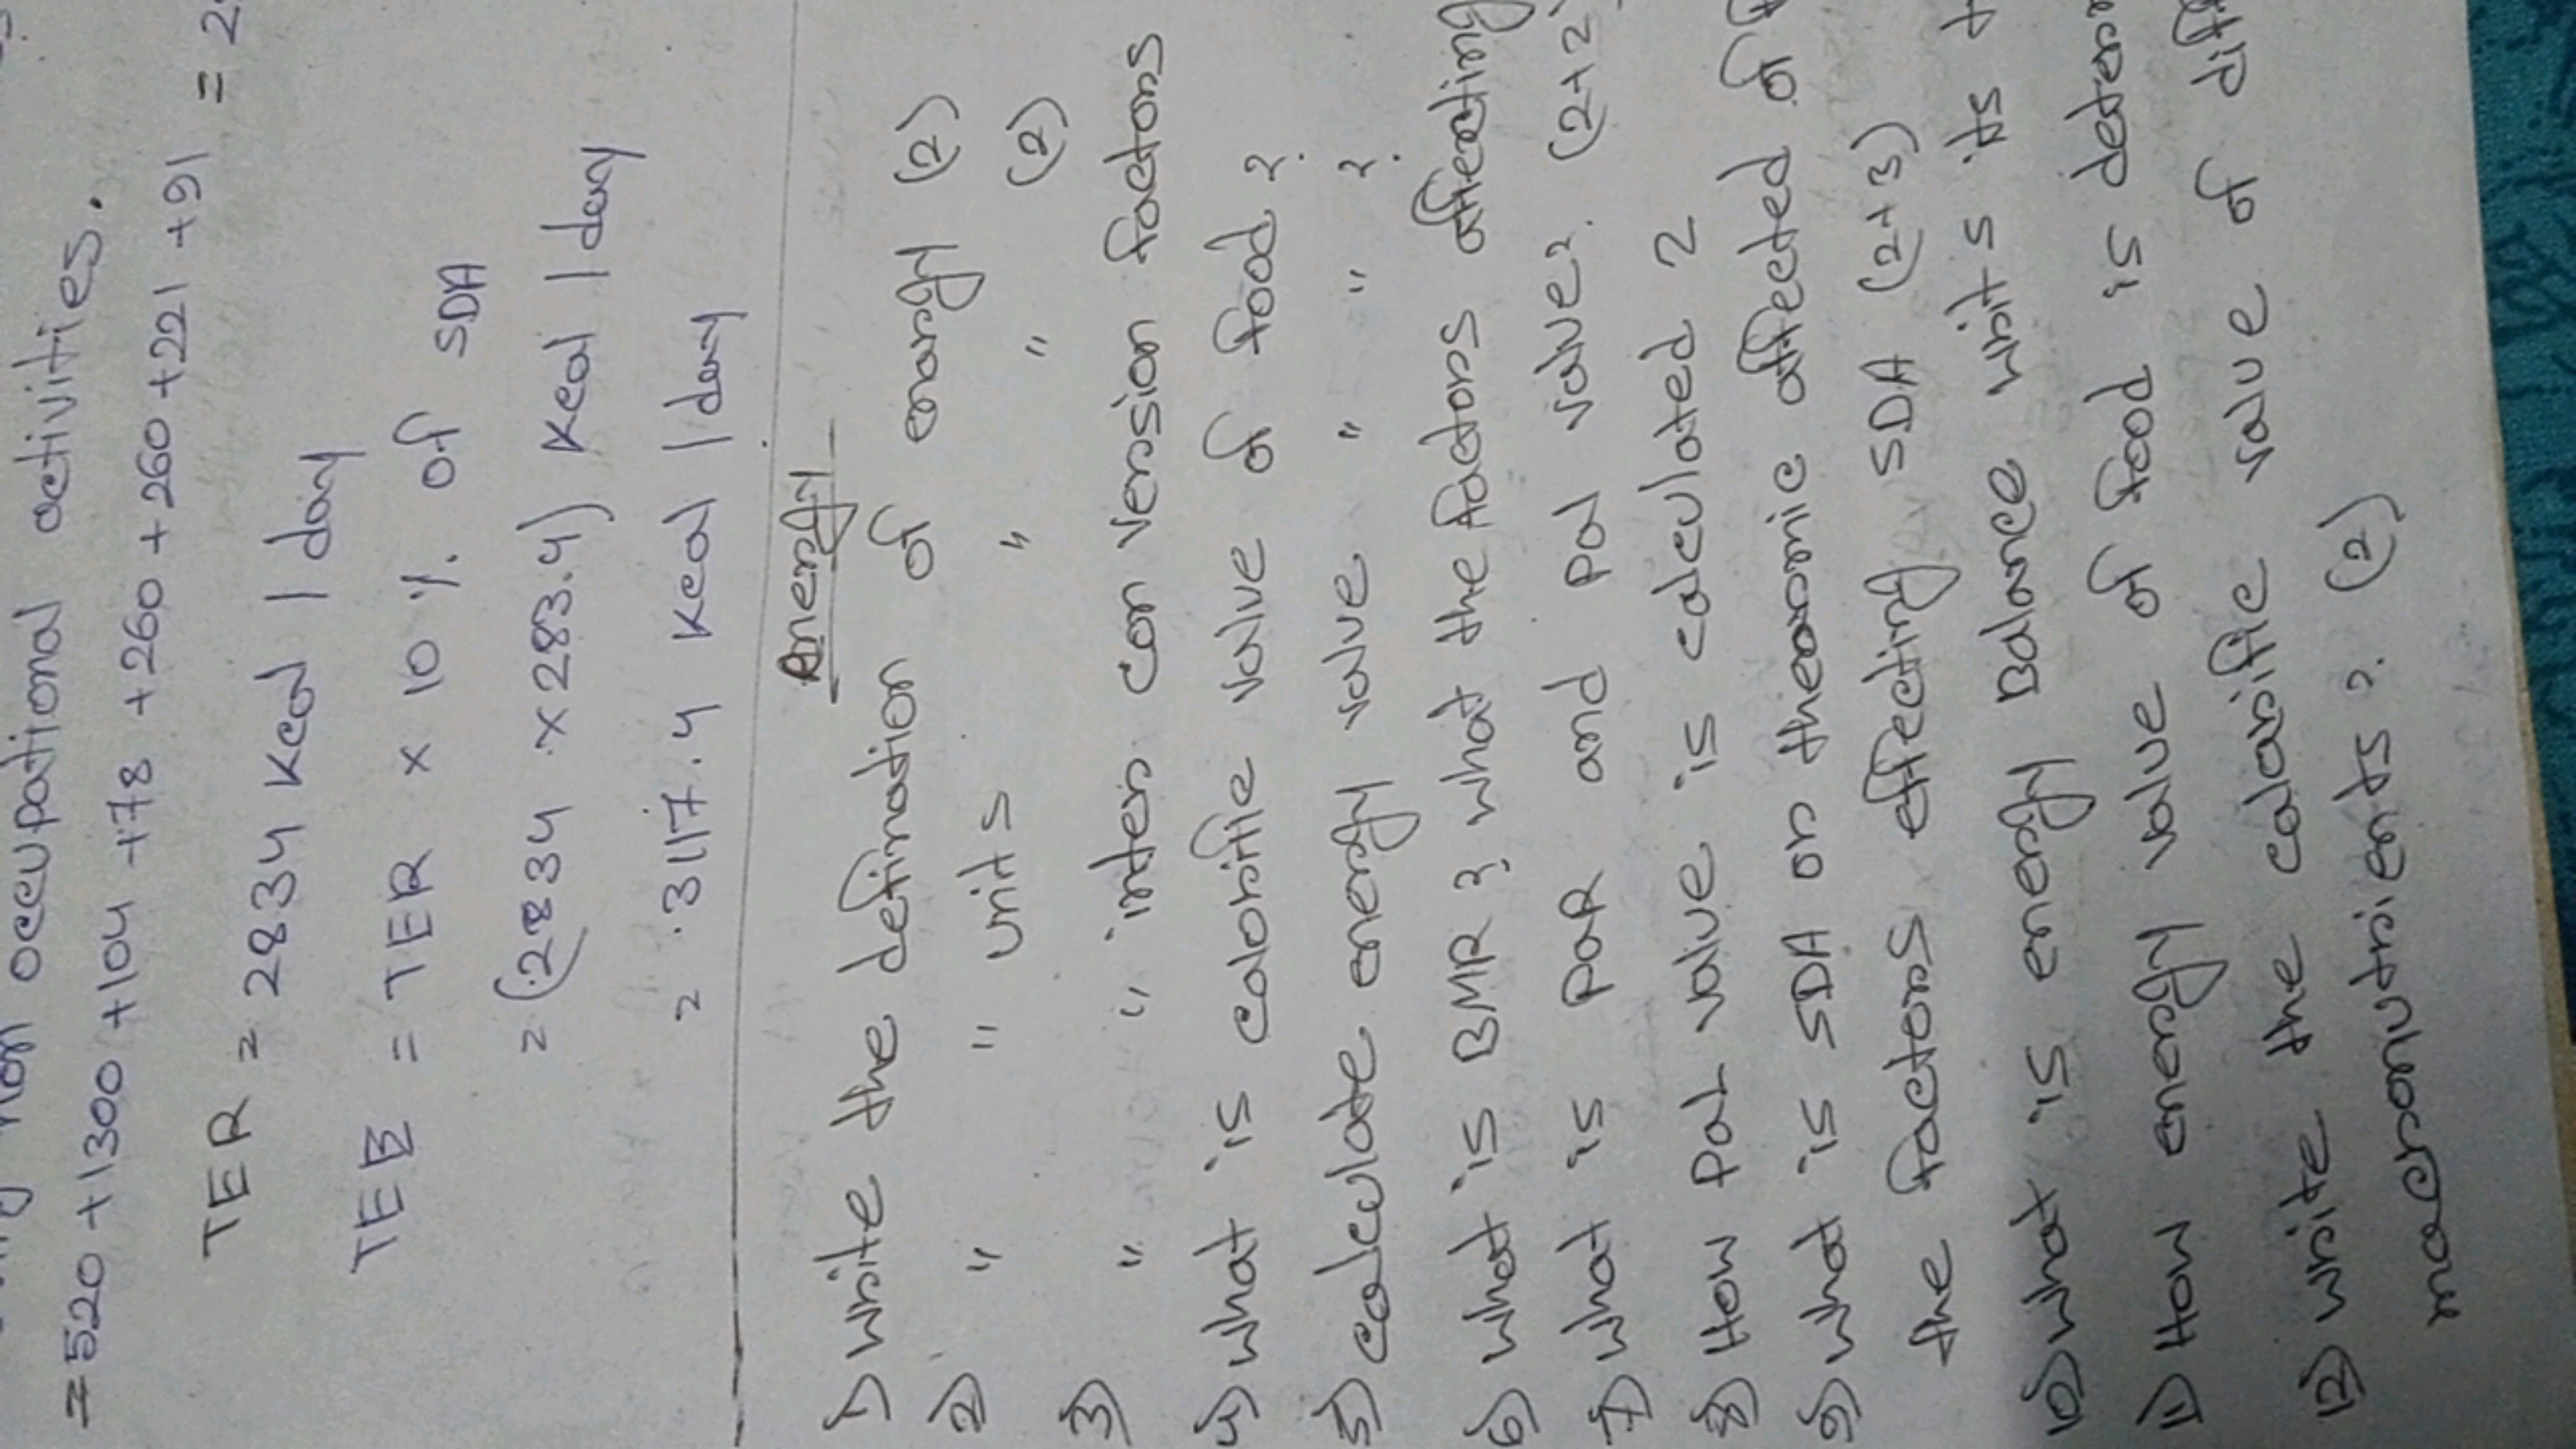 occupational activities.
= 520 + 1300 + 104 + 78 + 260 + 260 + 221 + 91 =
TER = 2834 Kcal / day
TEE = TER × 10 % of SDA
= (2834 × 283.4) Kcal / day
= 3117.4 Kcal / day
Energy
1) write the defination of energy (2)
2) " " units " " (2)
3) " " inter con version factors
4) what is calorific value of food ?
5) calculate energy value " " ?
6) what is BMR & what the factors affecting
7) what is PAR and pal value? (2+2)
8) How pal value is calculated 2
9) what is SDA or thearmic affected of
the factors effecting SDA (2+3)
10) what is energy Balance writ s its
11) How energy value of food is
12) write the calorific value of
macronutrients ? (2)